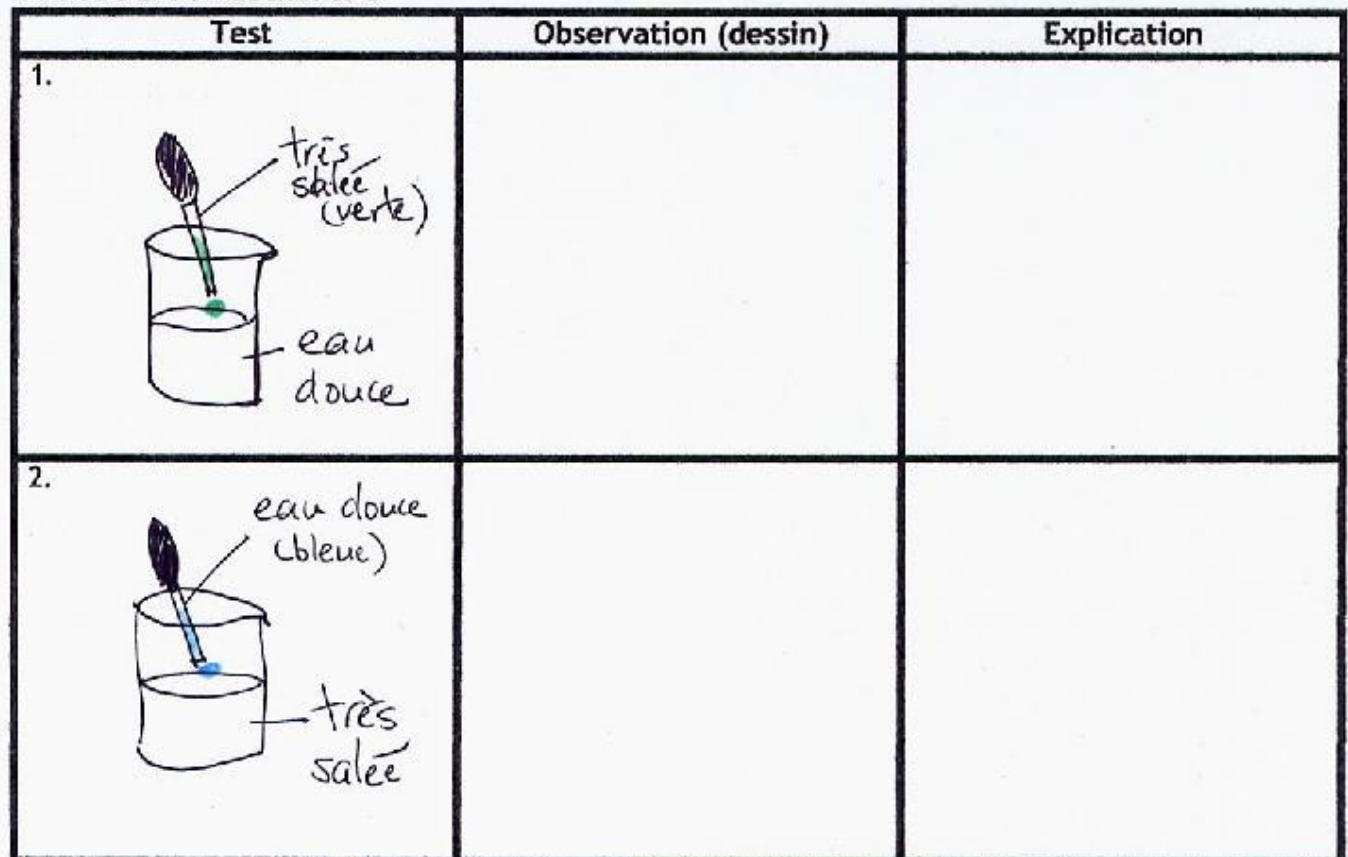 Test
Observation (dessin)
Explication
1.
très
salée
(verte)
eau
douce
2.
eau douce
(bleue)
très
salée